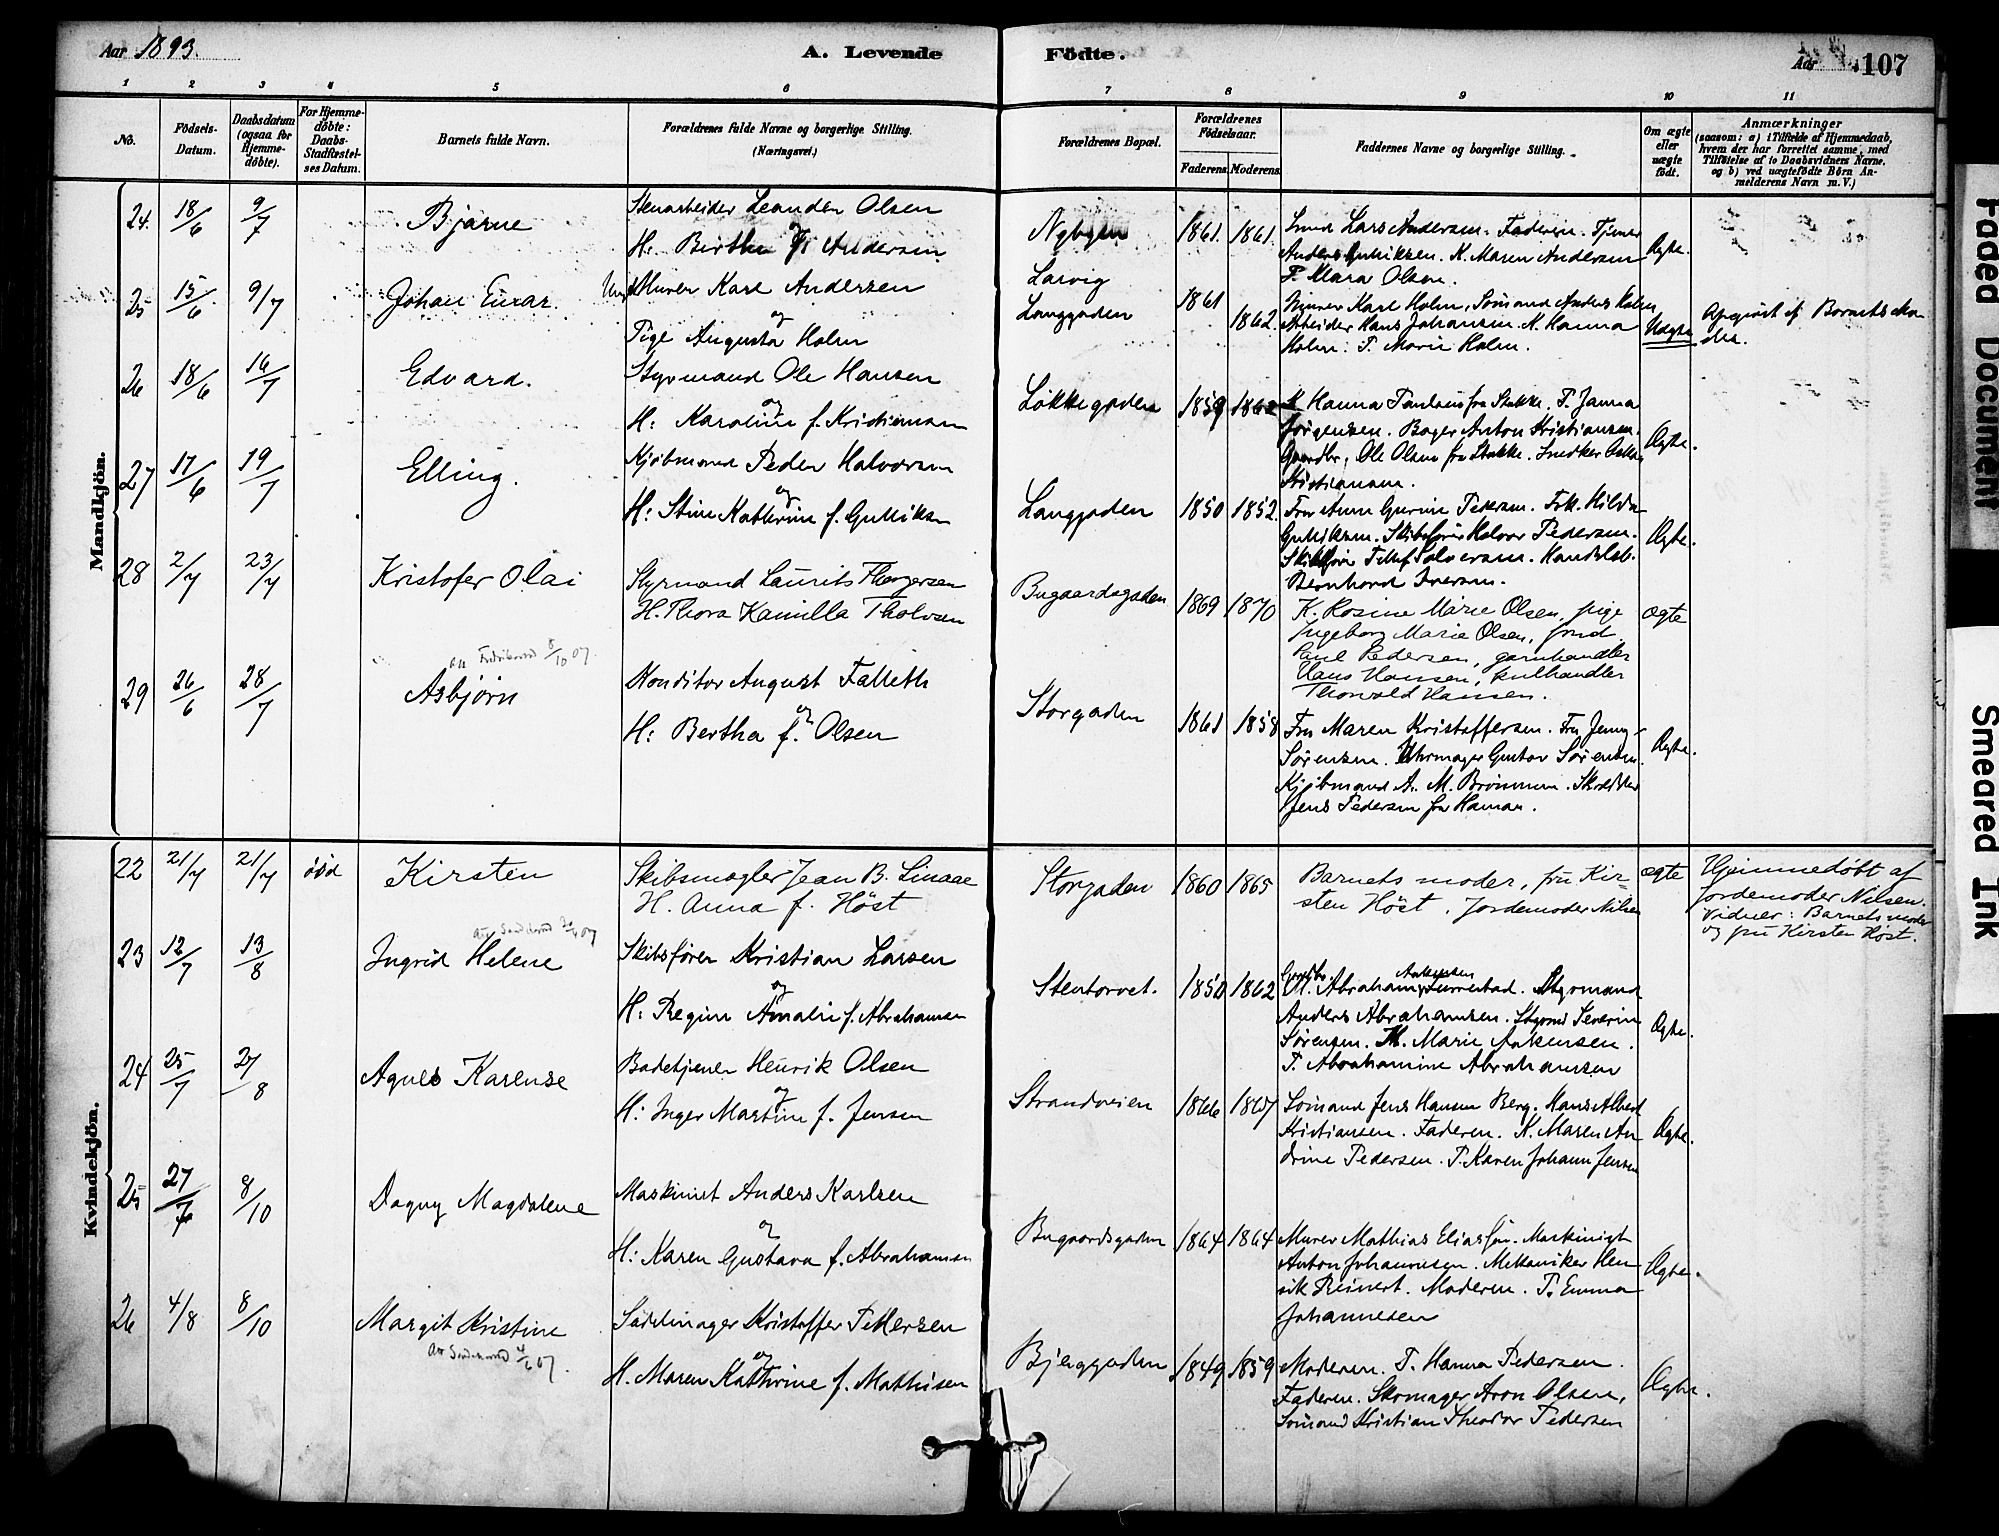 Aar 1893. A. Levende Födte. Aar 107
1 2 3 4 5 6 7 8 9 10 11
No.
Födsels-
Datum.
Daabsdatum
(ogsaa for
Hjemme-
döbte).
For Hjemme-
döbte:
Daabs-
Stadfæstel-
ses Datum.
Barnets fulde Navn.
Forældrenes fulde Navne og borgerlige Stilling.
(Næringsvei.)
Forældrenes Bopæl.
Forældrenes
Födselsaar.
Faderens. Moderens.
Faddernes Navne og borgerlige Stilling.
Om ægte
eller
uægte
födt.
Anmærkninger
(saasom: a) i Tilfælde af Hjemmedaab,
hvem der har forrettet samme, med
Tilföielse af to Daabsvidners Navne,
og b) ved uægtefödte Börn An-
melderens Navn m. V.)
Mandkjön.
24. 18/6 9/7 Bjarne
Stenarbeider Leander Olsen
H: Berthe Andersen
Nybyen 1861. 1861.
Smed Lars Andersen. Faderen. Tjener
Anders Gulliksen. K. Maren Andersen
P. Mara Olsen.
Ægte.
25 15/6 9/7 Johan Einar
Ungk. Murer Karl Andersen
og
Pige Augusta Holm
Larvig
Langgaden 1861 1862.
Murer Karl Holm, Sömand Anders Holm
Arbeider Hans Johansen. K. Hanna
Holm. P. Marie Holm.
Uægte
Opgivet af Barnets Mo
der.
26 18/6 16/7 Edvard.
Styrmand Ole Hansen
og
H: Karoline f. Kristiansen
Lökkegaden 1859 1862
K Hanna Paulsen fra Stokke. P. Janna
Jörgensen. Bager Anton Kristiansen.
Gaardbr. Ole Olsen fra Stokke. Snedker
Kristiansen.
Ægte.
27 17/6 19/7 Elling.
Kjöbmand Peder Halvorsen
og
H: Stine Kathrine f. Gulliksen
Langgaden 1850 1852.
Fru Anne Gurine Pedersen. Frk. Hilda
Gulliksen. Skibsförer Halvor Pedersen.
Skibsförer Tellef Salvesen. Handelsb.
Bernhard Iversen.
Ægte.
28 2/7 23/7 Kristofer Olai
Styrmand Laurits Thorgersen
H. Thora Kamilla Tholvsen
Bugaardsgaden 1869 1870
K. Rosine Marie Olsen, pige
Ingeborg Marie Olsen, smed
Paul Pedersen, garnhandler
Hans Hansen, kulhandler
Thorvald Hansen.
ægte
Att Fredrikstad 8/10 07.
29 26/6 28/7 Asbjörn
Konditor August Falleth
og
H: Bertha f. Olsen
Storgaden 1861 1858
Fru Maren Kristoffersen. Fru Jenny
Sörensen. Uhrmager Gustav Sörensen.
Kjöbmand A. M. Brömnum. Skrædder
Jens Pedersen fra Hamar.
Ægte.
Kvindekjön.
22 21/7 21/7 död Kirsten
Skibsmægler Jean B. Linaae
H. Anna f. Höst
Storgaden 1860 1865
Barnets moder, fru Kir-
sten Höst. Jordemoder Nilsen
ægte
Hjemmedöbt af
Jordemoder Nilsen.
Vidner: Barnets moder
og fru Kirsten Höst.
23 12/7 13/8 Ingrid Helene
Skibsförer Kristian Larsen
og
H: Regine Amalie f. Abrahamsen
Stentorvet. 1850 1862
Gaardbr. Abraham Ankersen. Styrmand
Anders Abrahamsen. Styrmd Severin
Sörensen. K. Marie Ankersen.
P. Abrahamine Abrahamsen
Ægte.
24 25/7 27/8 Agnes Karense
Badetjener Henrik Olsen
og
H: Inger Martine f. Jensen
Strandveien 1866 1867
Sömand Jens Hansen Berg. Hans Albert
Kristiansen. Faderen. K. Maren An
drine Pedersen. P. Karen Johanne Jensen
Ægte.
25 27/7 8/10 Dagny Magdalene
Maskinist Anders Karlsen
og
H: Karen Gustava f. Abrahamsen
Bugaardsgaden 1864 1864
Murer Mathias Eliassön. Maskinist
Anton Johannesen. Mekaniker Hen
rik Reinert. Moderen. P. Emma
Johannesen
Ægte.
26 4/8 8/10 Margit Kristine
Sadelmager Kristoffer Pettersen
og
H. Maren Kathrine f. Mathisen
Bjerggaden 1849 1859
Moderen. P. Hanna Pedersen.
Faderen. Skomager Aron Olsen,
Sömand Kristian Theodor Pedersen
Ægte.
Faded Document
Smeared Ink